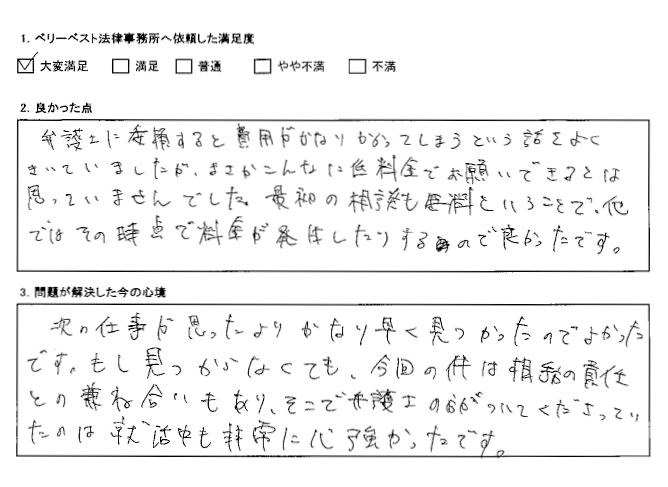 1. ベリーベスト法律事務所へ依頼した満足度
大変満足 満足 普通 やや不満 不満
2. 良かった点
弁護士に委頼すると費用がかなりかかってしまうという話をよく
きいていましたが、まさかこんなに低料金でお願いできるとは
思っていませんでした。最初の相談も無料ということで、他
ではその時点で料金が発生したりするので良かったです。
3. 問題が解決した今の心境
次の仕事が思ったよりかなり早く見つかったのでよかった
です。もし見つからなくても、今回の件は相手の責任
との兼ね合いもあり、そこで弁護士の方がついてくださってい
たのは就活中も非常に心強かったです。